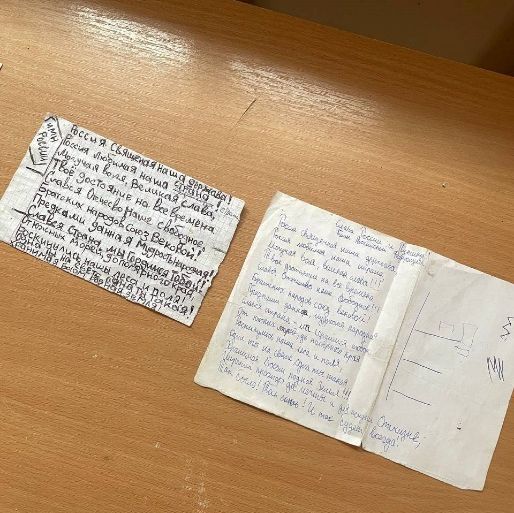 ГИМН РОССИИ
Россия священная наша держава!
Россия любимая наша страна!
Могучая воля, Великая слава,
Твое достояние на все времена
Славься Отечество наше свободное,
Братских народов союз Вековой!
Предками данная Мудрость народная!
Славься страна, мы гордимся Тобой!
От южных морей до полярного края,
Раскинулись наши леса и поля!
Одна ты на свете, одна ты такая!
Хранимая Богом родная земля!
Россия священная наша держава
Россия любимая наша страна
Могучая воля великая слава
Твоё достояние на все времена!!!
Славься Отечество наше свободное!!!
Братских народов союз вековой!
Предками данная мудрость народная!
Славься страна мы гордимся тобой
От южных морей до полярного края
Раскинулись наши леса и поля.
Одна ты на свете одна ты такая
Хранимая Богом родная земля!!!
Широкий простор для мечты и для жизни Отчизне;
Так было! Так есть! И так будет всегда!